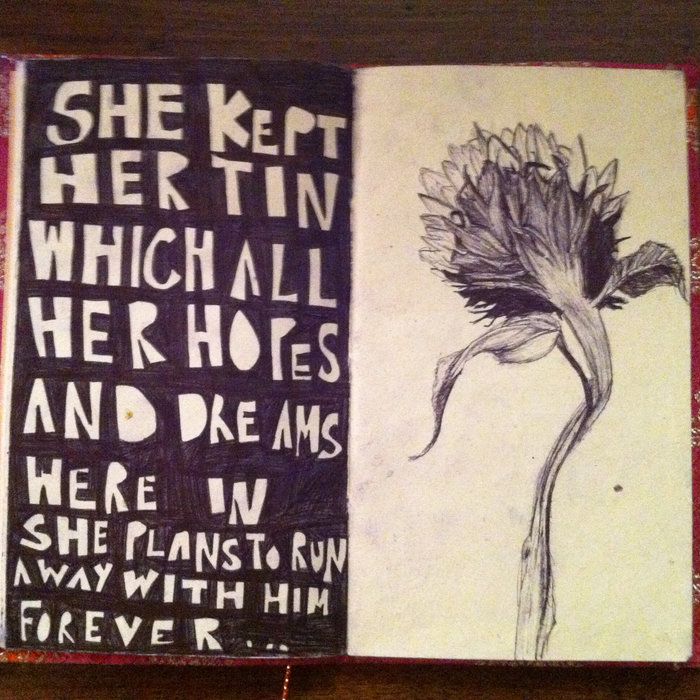 SHE KEPT
HER TIN
WHICH ALL
HER HOPES
AND DREAMS
WERE IN
SHE PLANS TO RUN
AWAY WITH HIM
FOREVER ...